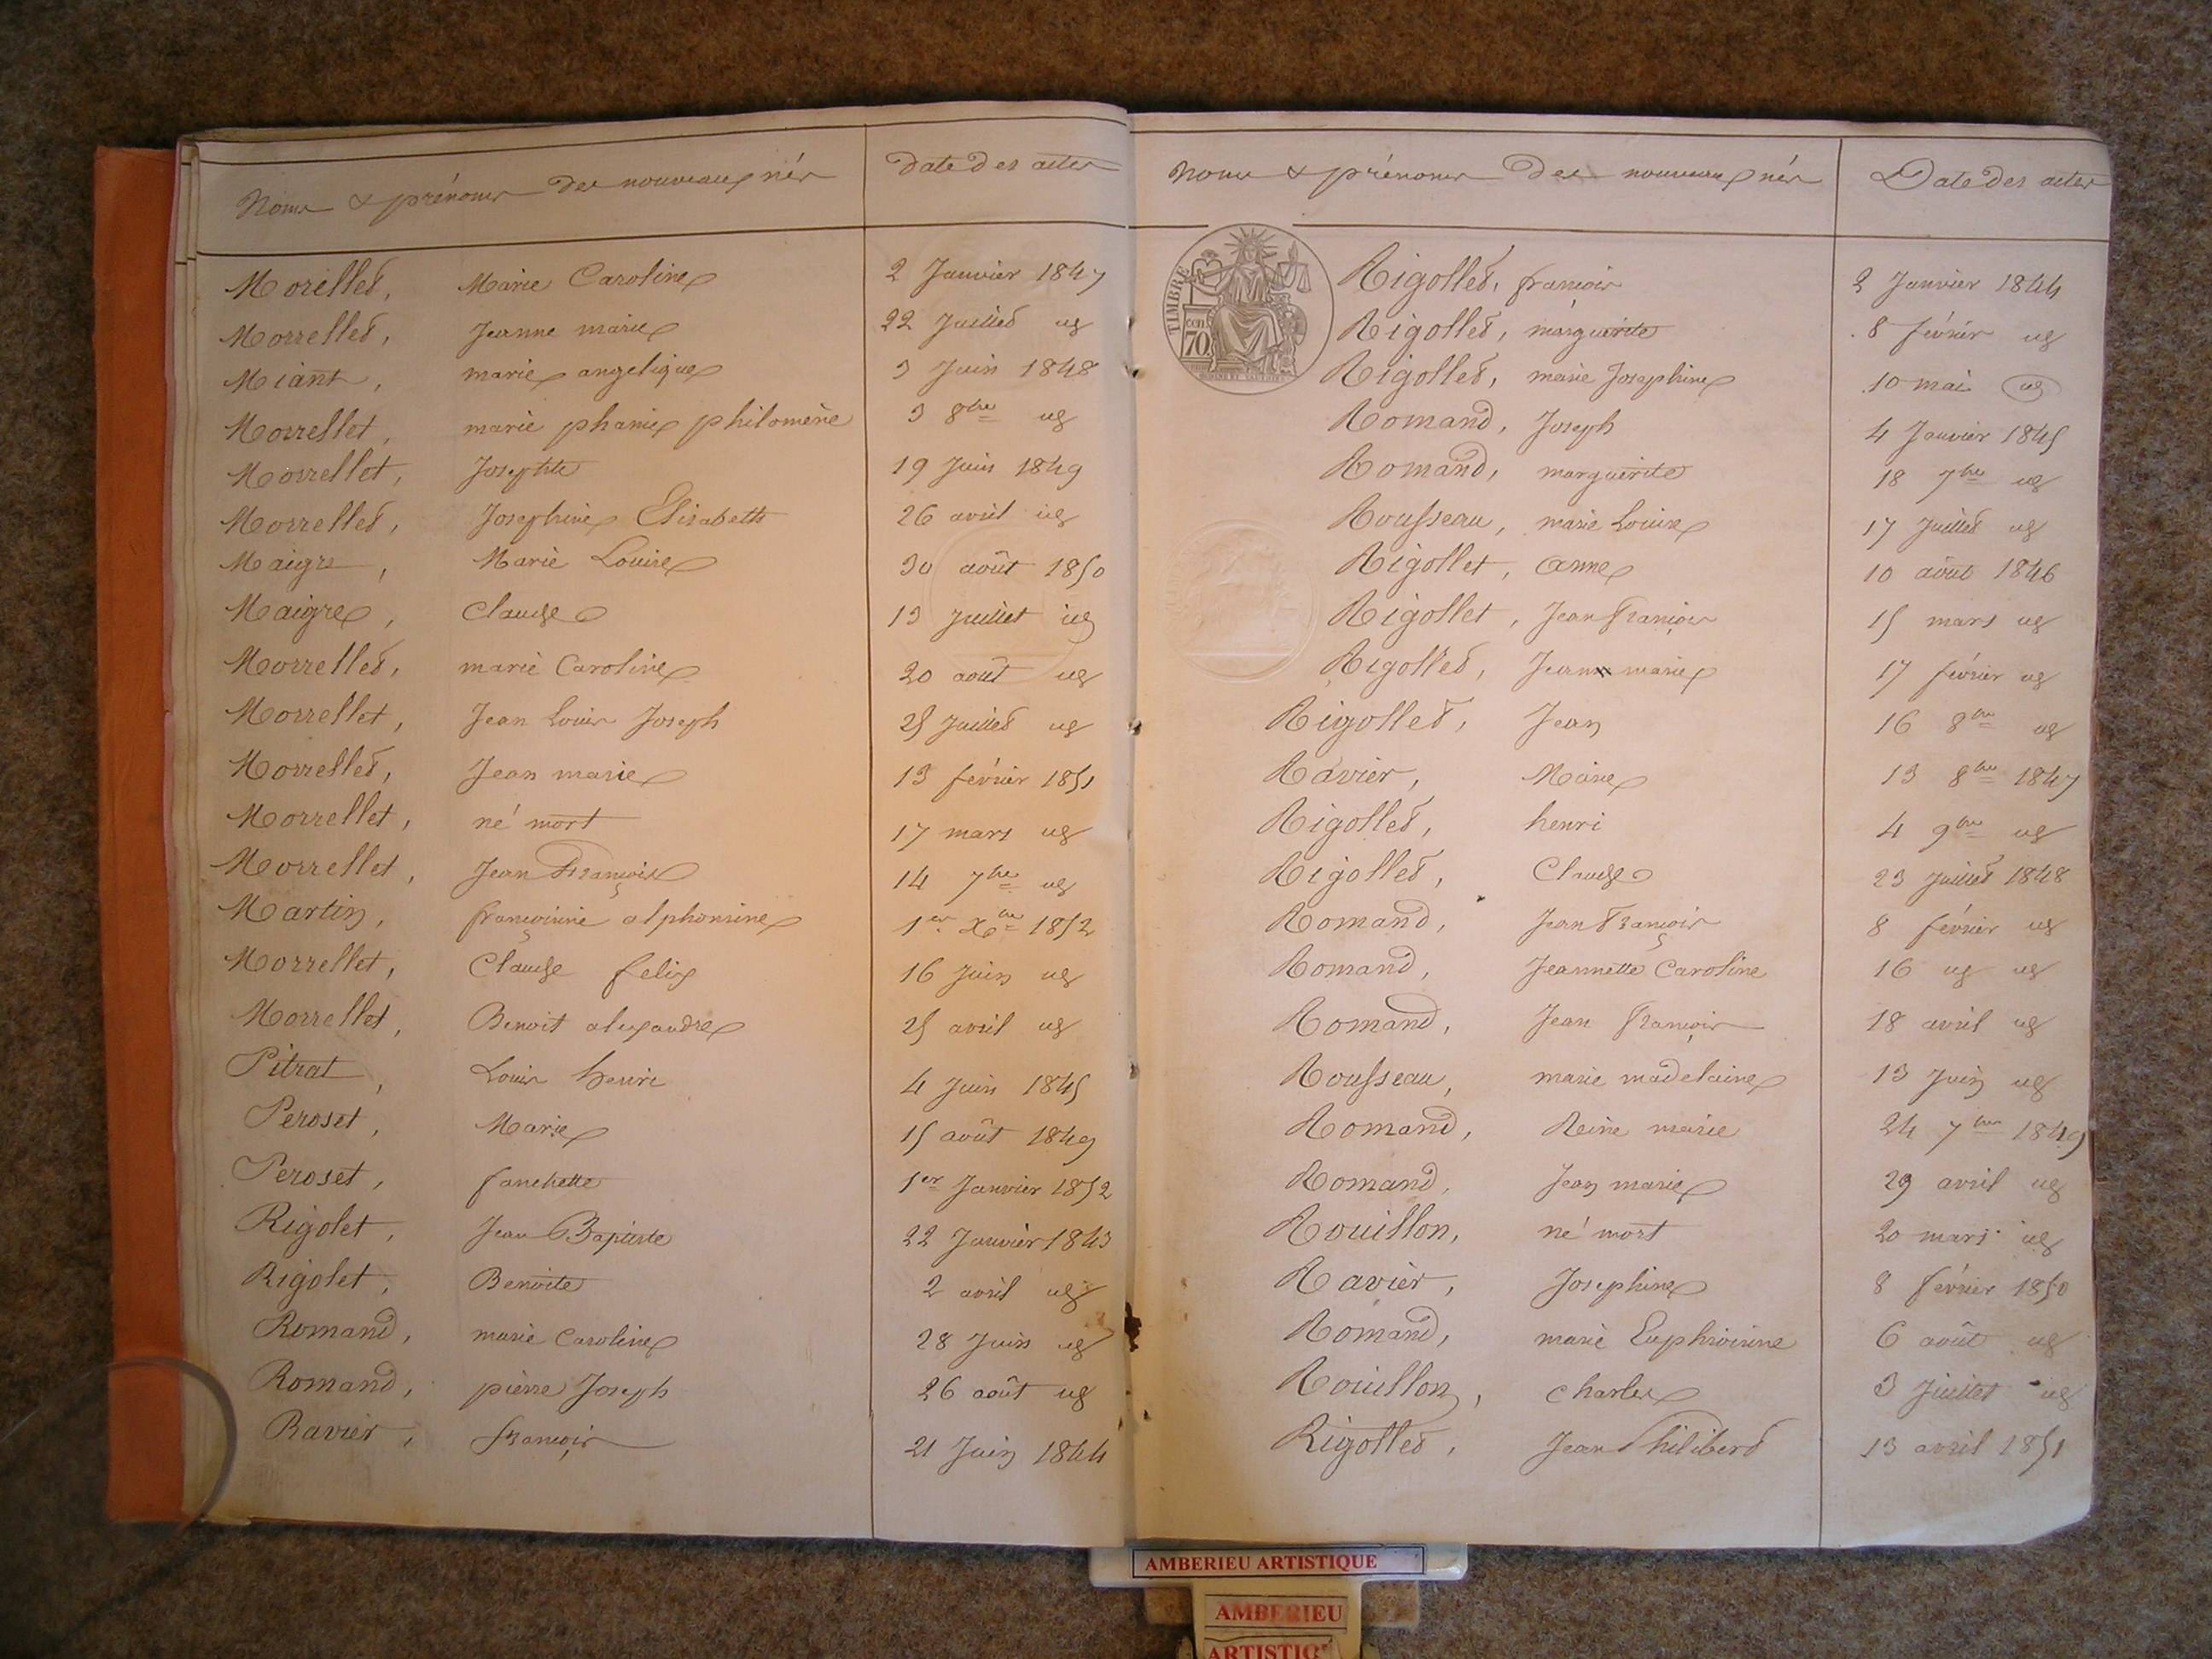 Noms & prénoms des nouveaux nés Date des actes
Morellet, Marie Caroline 2 Janvier 1847
Morrellet, Jeanne marie 22 Juillet id
Miant, marie angelique 3 Juin 1848
Morrellet, marie phanie philomène 3 8bre id
Morrellet, Josephte 19 Juin 1849
Morrellet, Josephine Elisabeth 26 avril id
Maigre, Marie Louise 30 août 1850
Maigre, Claude 13 Juillet id
Morrellet, marie Caroline 20 août id
Morrellet, Jean Louis Joseph 25 Juillet id
Morrellet, Jean marie 13 février 1851
Morrellet, né mort 17 mars id
Morrellet, Jean François 14 7bre id
Martin, françoisine alphonsine 1er Xbre 1852
Morrellet, Claude felix 16 Juin id
Morrellet, Benoit alexandre 25 avril id
Pitrat, Louis henri 4 Juin 1845
Peroset, Marie 15 août 1849
Peroset, fanchette 1er Janvier 1852
Rigolet, Jean Baptiste 22 Janvier 1843
Rigolet, Benoite 2 avril id
Romand, marie Caroline 28 Juin id
Romand, pierre Joseph 26 août id
Ravier, françois 21 Juin 1844
Noms & prénoms des nouveaux nés Date des actes
TIMBRE
70
Rigollet, françois 2 Janvier 1844
Rigollet, marguerite 8 février id
Rigollet, marie Josephine 10 mai id
Romand, Joseph 4 Janvier 1845
Romand, marguerite 18 7bre id
Rousseau, marie Louise 17 Juillet id
Rigollet, anne 10 août 1846
Rigollet, Jean François 15 mars id
Rigollet, Jean marie 17 février id
Rigollet, Jean 16 8bre id
Ravier, Marie 13 8bre 1847
Rigollet, henri 4 9bre id
Rigollet, Claude 23 Juillet 1848
Romand, Jean François 8 février id
Romand, Jeannette Caroline 16 id id
Romand, Jean François 18 avril id
Rousseau, marie madelaine 13 Juin id
Romand, Reine marie 24 7bre 1849
Romand, Jean marie 29 avril id
Rouillon, né mort 20 mars id
Ravier, Josephine 8 février 1850
Romand, marie Euphroisine 6 août id
Rouillon, charles 3 Juillet id
Rigollet, Jean Philibert 13 avril 1851
AMBERIEU ARTISTIQUE
AMBERIEU
ARTISTIQ